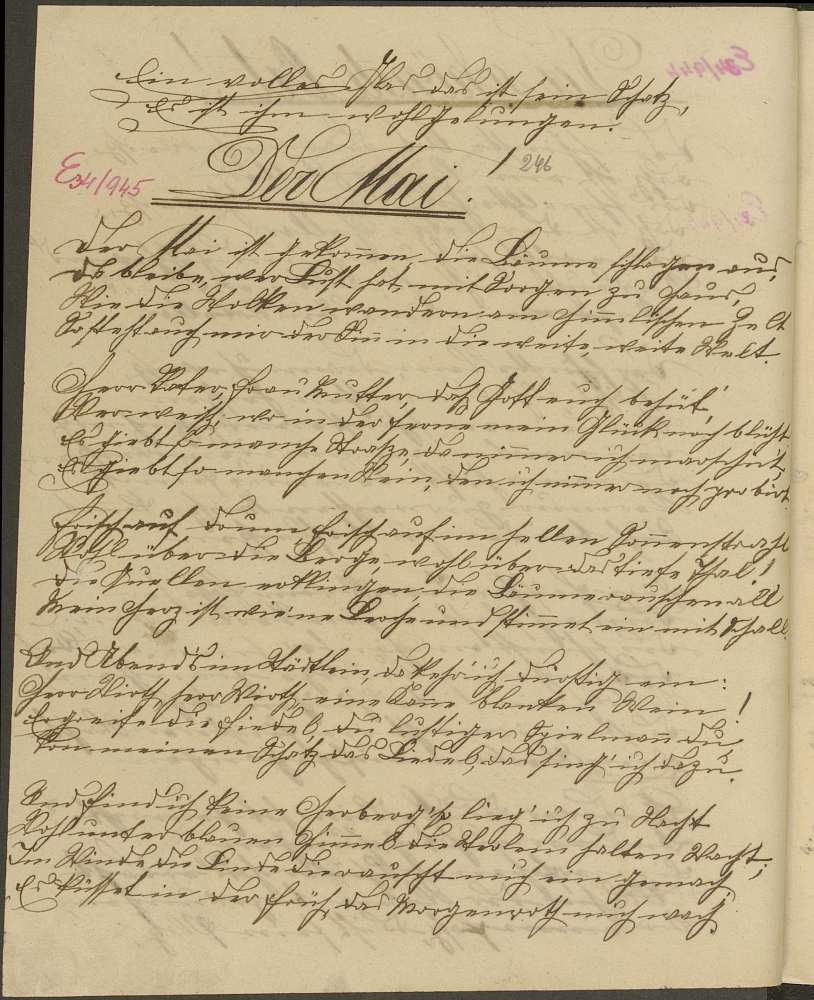 Ein volles Glas das ist sein Schatz,
Es ist ihm wohlgelungen.
Der Mai.
! 246
E34/945
Der Mai ist gekommen, die Bäume schlagen aus,
Da bleibe, wer Lust hat, mit Sorgen zu Haus,
Wie die Wolken wandern am himmlischen Zelt
So steht auch mir der Sinn in die weite, weite Welt.
Herr Vater, Frau Mutter, daß Gott euch behüt,
Wer weiß, wo in der Ferne mein Glück noch blüht
Es giebt so manche Straße, da nimmer ich marschirt,
Es giebt so manchen Wein, den ich nimmer noch probirt.
Frisch auf drum frisch auf im hellen Sonnenstrahl
Wohl über die Berge wohl über das tiefe Thal!
Die Quellen erklingen die Bäume rauschen all
Mein Herz ist wie'ne Lerche und stimmet ein mit Schall.
Und Abends im Städtlein da kehr' ich durstig ein:
Herr Wirth, Herr Wirth, eine Kanne blanken Wein!
Ergreife die Fiedel, du lustiger Spielmann du,
Von meinem Schatz das Liedel, das sing' ich dazu.
Und find ich keine Herberg' so lieg' ich zu Nacht
Wohl unter blauen Himmel die Sterlein halten Wacht;
Im Winde die Linde die rauscht mich ein gemach
Es küsset in der Früh, das Morgenroth mich wach.